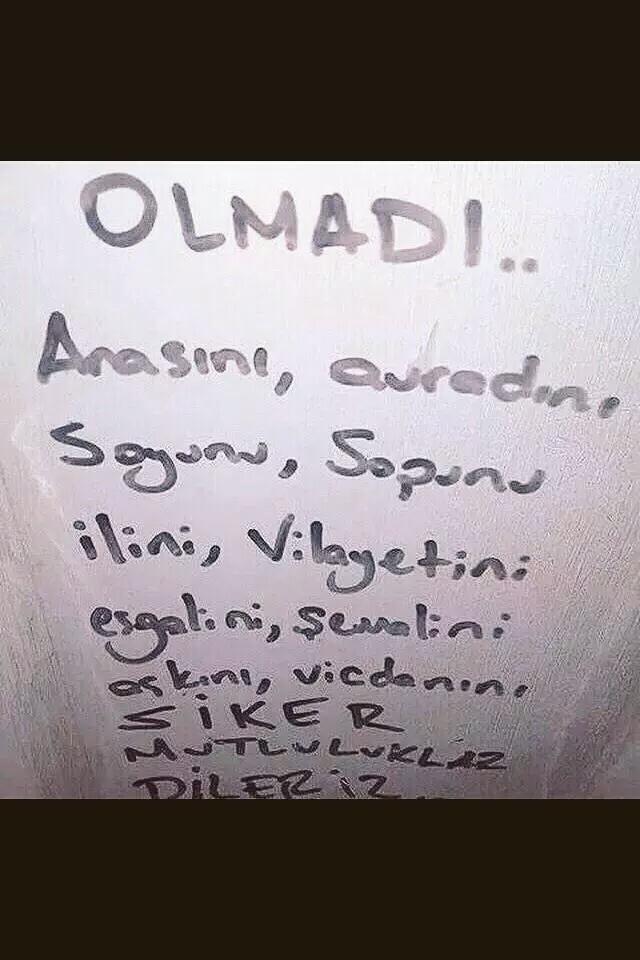 OLMADI..
Anasını, avradını
Soyunu, Sopunu
ilini, Vilayetini
eşgalini, şemalini
aşkını, vicdanını
SİKER
MUTLULUKLAR
DİLERİZ..